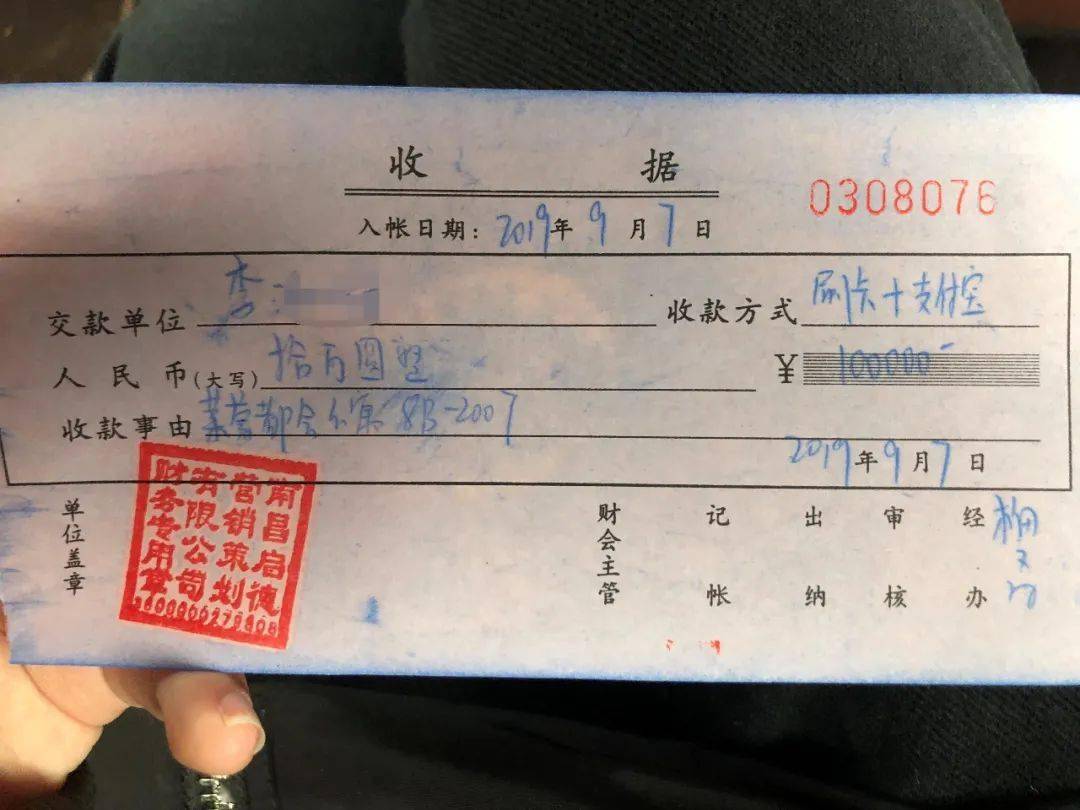 收 据
0308076
入帐日期：2019年9月7日
交款单位 李： 收款方式 刷卡+支付宝
人民币(大写) 拾万圆整 ¥ 100000-
收款事由 莱蒙都会公寓 8B-2007
2019年9月7日
单位盖章 财会主管 记帐 出纳 审核 经办
南昌启德
营销策划
有限公司
财务专用章